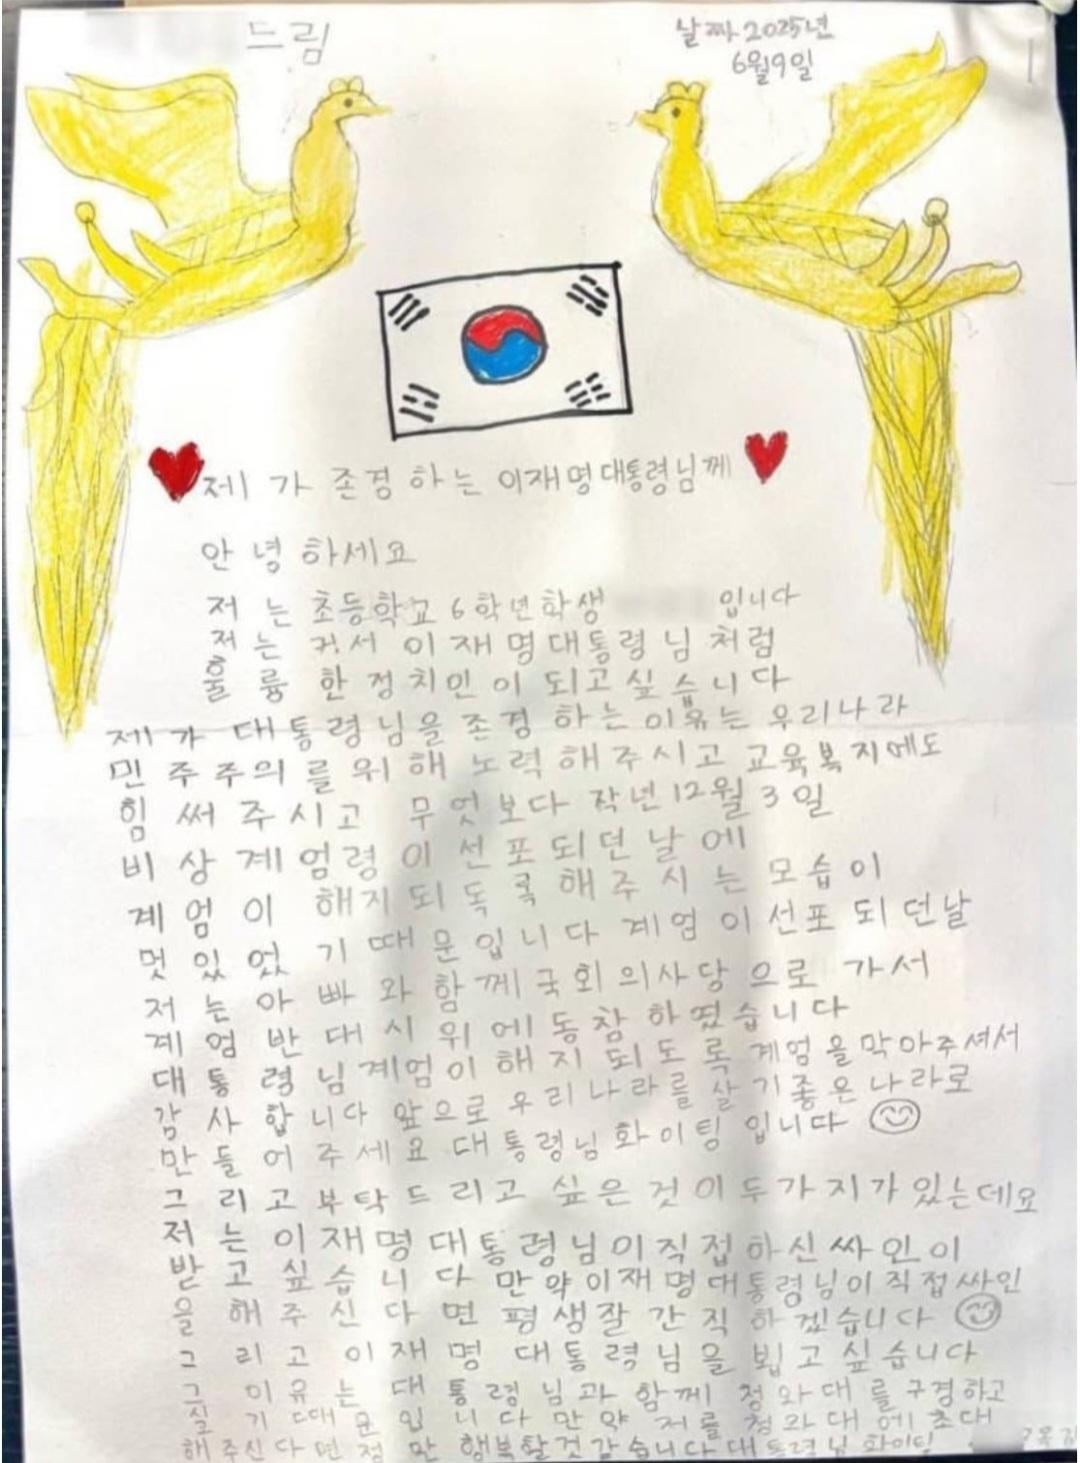 드림
날짜 2025년
6월9일
제가 존경하는 이재명대통령님께
안녕하세요
저는 초등학교 6학년학생 입니다
저는 커서 이재명대통령님처럼
훌륭한 정치인이 되고싶습니다
제가 대통령님을 존경하는 이유는 우리나라
민주주의를 위해 노력해주시고 교육복지에도
힘써주시고 무엇보다 작년12월3일
비상계엄령이 선포되던날에
계엄이 해지되독록 해주시는 모습이
멋있었기때문입니다 계엄이선포되던날
저는아빠와함께국회의사당으로 가서
계엄반대시위에동참하였습니다
대통령님계엄이해지되도록계엄을막아주셔서
감사합니다 앞으로우리나라를살기좋은나라로
만들어주세요대통령님화이팅입니다
그리고부탁드리고 싶은것이두가지가있는데요
저는이재명대통령님이직접하신싸인이
받고싶습니다만약이재명대통령님이직접싸인
을해주신다면평생잘간직하겠습니다
그리고이재명대통령님을뵙고싶습니다
그이유는대통령님과함께청와대를구경하고
싶기때문입니다만약저를청와대에초대
해주신다면정만행복할것같습니다대통령님화이팅